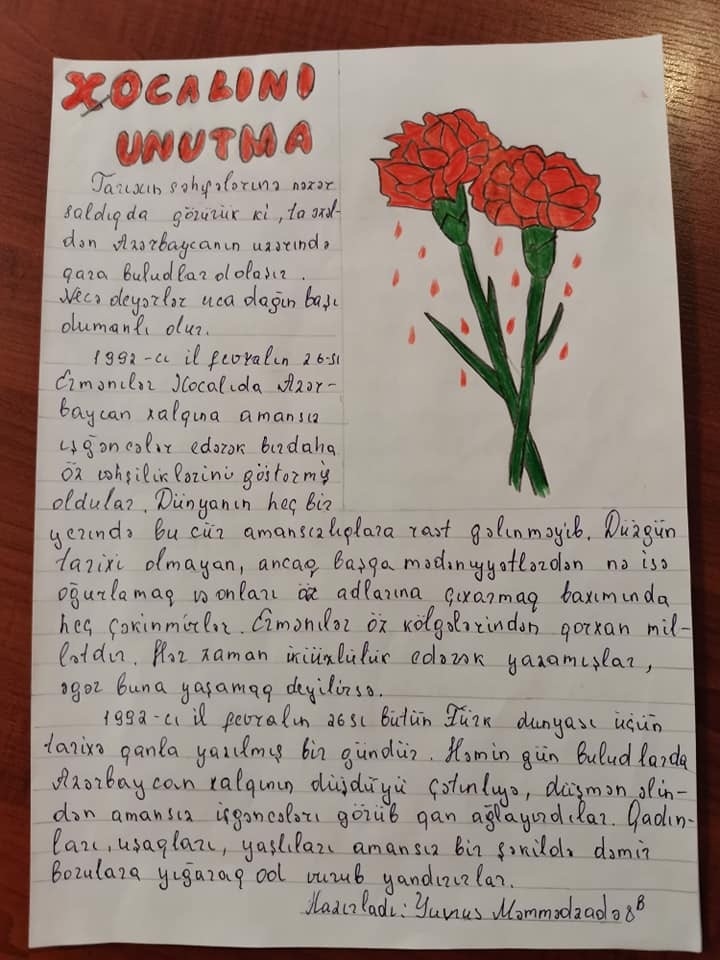 XOCALINI
UNUTMA
Tarixin səhifələrinə nəzər
saldıqda görürük ki, ta əzəl-
dən Azərbaycanın üzərində
qara buludlar dolaşır.
Necə deyərlər uca dağın başı
dumanlı olur.
1992-ci il fevralın 26-sı
Ermənilər Xocalıda Azər-
baycan xalqına amansız
işgəncələr edərək birdaha
öz vəhşiliklərini göstərmiş
oldular. Dünyanın heç bir
yerində bu cür amansızlıqlara rast gəlinməyib. Düzgün
tarixi olmayan, ancaq başqa mədəniyyətlərdən nə isə
oğurlamaq və onları öz adlarına çıxarmaq baxımında
heç çəkinmirlər. Ermənilər öz kölgələrindən qorxan mil-
lətdir. Hər zaman ikiüzlülük edərək yaşamışlar,
əgər buna yaşamaq deyilirsə.
1992-ci il fevralın 26sı bütün Türk dunyası üçün
tarixə qanla yazılmış bir gündür. Həmin gün buludlarda
Azərbaycan xalqının düşdüyü çətinliyə, düşmən əlin-
dən amansız işgəncələri görüb qan ağlayırdılar. Qadın-
ları, uşaqları, yaşlıları amansız bir şəkildə dəmir
borulara yığaraq od vurub yandırırlar.
Hazırladı: Yunus Məmmədzadə 8ᴮ